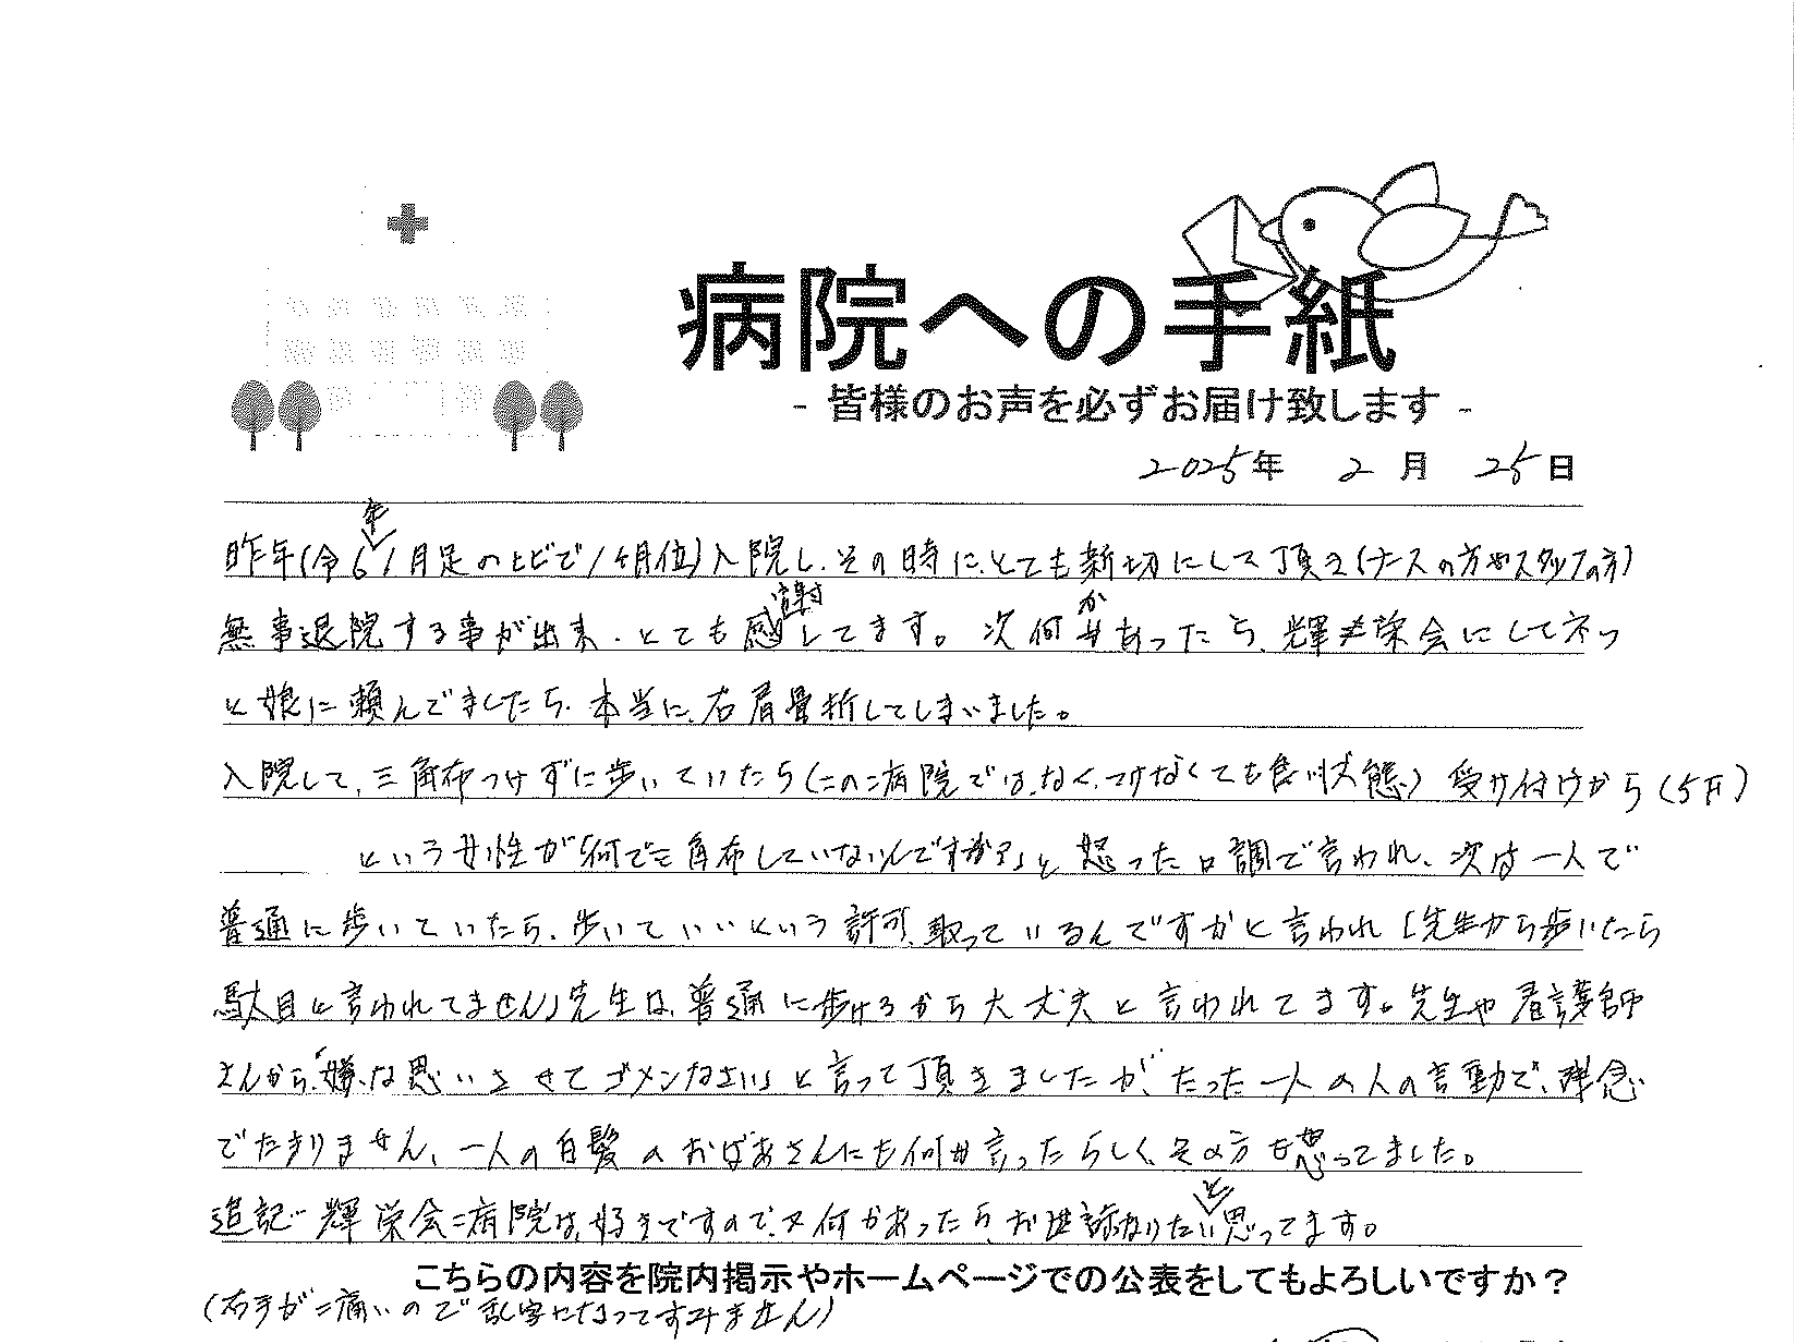 病院への手紙
- 皆様のお声を必ずお届け致します -
2025年 2月 25日
昨年(令6年1月足のヒビで1ヶ月位)入院し、その時に、とても親切にして頂き(ナースの方やスタッフの方)
無事退院する事が出来、とても感謝してます。次何かあったら、輝栄会にしてネッ
と娘に頼んでましたら、本当に、右肩骨折してしまいました。
入院して、三角布つけずに歩いていたら(この病院では、なく、つけなくても良い状態) 受け付けから(5F)
という女性が「何で三角布していないんですか?」と怒った口調で言われ、次は一人で
普通に歩いていたら、歩いていいという許可、取っているんですかと言われ「先生から歩いたら
駄目と言われてません」先生は、普通に歩けるから大丈夫と言われてます。先生や看護師
さんから、「嫌な思いさせてゴメンなさい」と言って頂きましたが、たった一人の人の言動で、残念
でたまりません、一人の白髪のおばあさんにも何か言ったらしく、その方も怒ってました。
追記… 輝栄会病院は、好きですので、又何かあったら、お世話なりたいと思ってます。
こちらの内容を院内掲示やホームページでの公表をしてもよろしいですか？
(右手が痛いので乱字になってすみません)